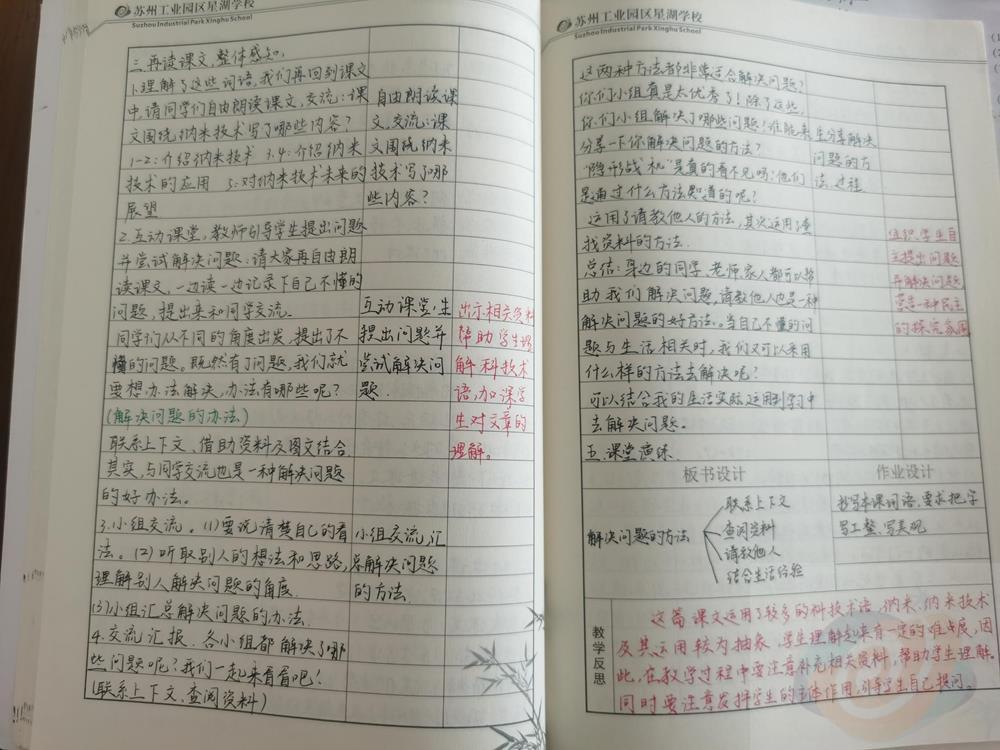 苏州工业园区星湖学校
Suzhou Industrial Park Xinghu School
三.再读课文,整体感知,
1.理解了这些词语,我们再回到课文
中,请同学们自由朗读课文,交流:课
文围绕纳米技术写了哪些内容?
1-2:介绍纳米技术 3.4:介绍纳米
技术的应用 5:对纳米技术未来的
展望
自由朗读课
文,交流:课
文围绕纳米
技术写了哪
些内容?
2.互动课堂,教师引导学生提出问题
并尝试解决问题:请大家再自由朗
读课文,一边读一边记录下自己不懂的
问题,提出来和同学交流。
同学们从不同的角度出发,提出了不
懂的问题。既然有了问题,我们就
要想办法解决,办法有哪些呢?
(解决问题的办法)
联系上下文、借助资料及图文结合
其实,与同学交流也是一种解决问题
的好办法。
互动课堂,生
提出问题并
尝试解决问
题.
出示相关资料
帮助学生理
解科技术
语,加深学
生对文章的
理解。
3.小组交流。(1)要说清楚自己的看
法。(2)听取别人的想法和思路,
理解别人解决问题的角度.
(3)小组汇总解决问题的办法.
小组交流,汇
总解决问题
的方法.
4.交流汇报.各小组都解决了哪
些问题呢?我们一起来看看吧!
(联系上下文、查阅资料)
苏州工业园区星湖学校
Suzhou Industrial Park Xinghu School
这两种方法都非常适合解决问题?
你们小组真是太优秀了!除了这些,
你们小组解决了哪些问题!谁能来
分享一下你解决问题的方法?
生分享解决
问题的方
法、过程
"隐形战机"是真的看不见吗?他们
是通过什么方法知道的呢?
运用了请教他人的方法,其次运用了查
找资料的方法.
总结:身边的同学、老师家人都可以帮
助我们解决问题,请教他人也是一种
解决问题的好方法。当自己不懂的问
题与生活相关时,我们又可以采用
什么样的方法去解决呢?
可以结合我的生活实际运用到学习中
去解决问题。
组织学生自
主提出问题
并解决问题
营造一种民主
的探究氛围
五.课堂演练
板书设计
作业设计
解决问题的方法
联系上下文
查阅资料
请教他人
结合生活经验
抄写本课词语,要求把字
写工整、写美观
教学反思
这篇课文运用了较多的科技术语,纳米、纳米技术
及其运用较为抽象,学生理解起来有一定的难度,因
此,在教学过程中要注意补充相关资料,帮助学生理解.
同时要注意发挥学生的主体作用,引导学生自己提问.